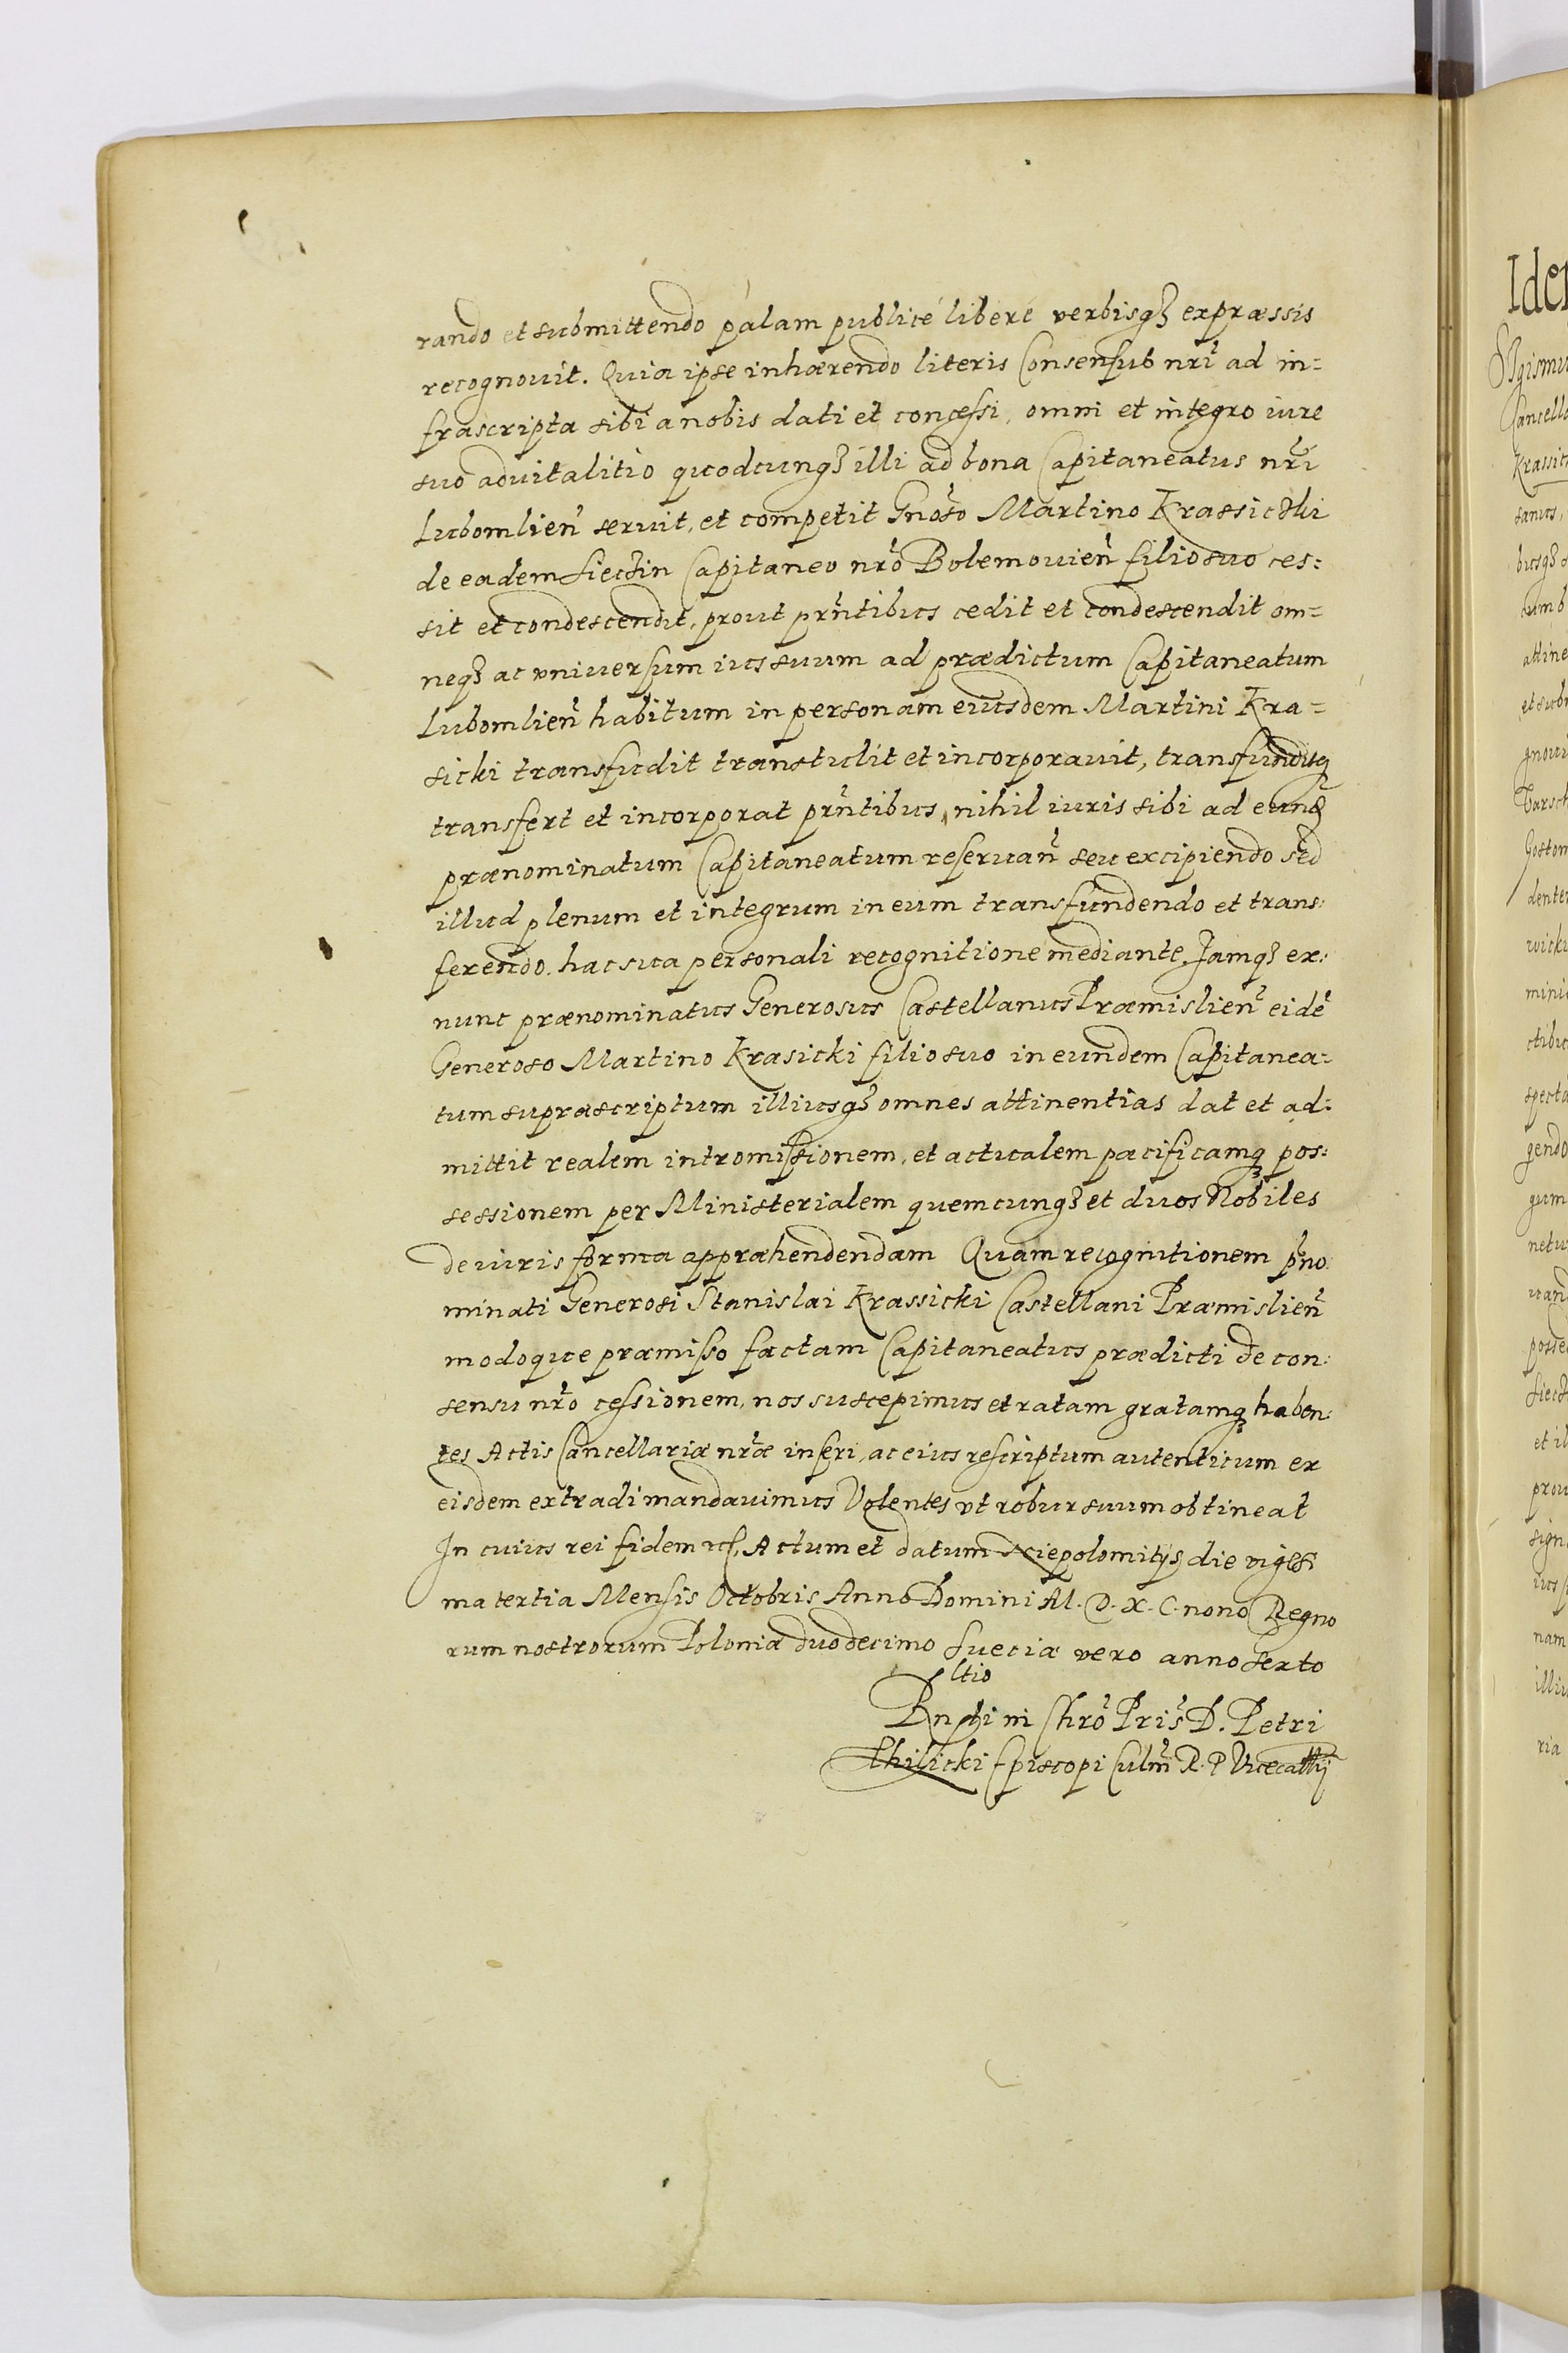 rando et submittendo pálam publicé liberé verbisqꝫ expræssis
recognouit. Quia ipse inhærendo literis Consensub nr̃i ad in=
frascripta sibi a nobis dati et concessi, omni et integro iure
suo aduitalitio quodcunqꝫ illi ad bona Capitaneatus nr̃i
Lubomlien̄ seruit, et competit Gnõso Martino Krassicki
de eadem Sieczin Capitaneo nr̃o Bolemouien̄ filio suo ces:
sit et condescendit, prout pr̃ntibus cedit et condescendit om=
neqꝫ ac vniuersum ius suum ad prædictum Capitaneatum
Lubomlien̄ habitum in personam eiusdem Martini Kra=
sicki transfudit transtulit et incorporauit, transfunditqꝫ
transfert et incorporat pr̃ntibus, nihil iuris sibi ad eund
prænominatum Capitaneatum reseruan̄ seu excipiendo sed
illud plenum et integrum in eum transfundendo et trans:
ferendo. hac sua personali recognitione mediante. Jamqꝫ ex:
nunc prænominatus Generosus Castellanus Præmislien̄ eidē
Generoso Martino Krasicki filio suo in eundem Capitanea:
tum suprascriptum illiusqꝫ omnes attinentias dat et ad:
mittit realem intromissionem, et actualem pacificamqꝫ pos:
sessionem per Ministerialem quemcunqꝫ et duos Nobiles
de iuris forma appræhendendam Quam recognitionem p̄no:
minati Generosi Stanislai Krassicki Castellani Præmislien̄
modoque præmisso factam Capitaneatus prædicti de con:
sensu nr̃o cessionem, nos suscepimus et ratam gratamqꝫ haben:
tes Actis Cancellariæ nr̃æ inseri, ac eius rescriptum autenticum ex
eisdem extradi mandauimus Volentes vt robur suum obtineat
In cuius rei fidem etc. Actum et datum Niepolomitijs die vigesi
ma tertia Mensis Octobris Anno Domini M. D. X. C. nono Regno
rum nostrorum Poloniæ duodecimo Sueciæ vero anno sexto
Rltio
Rndi in Chrõ Pris̄ D. Petri
Thilicki Episcopi Culm̄ R. P. Vicecan̄cellarij
Iden
Cancella
Krassic
et il
nam
ria